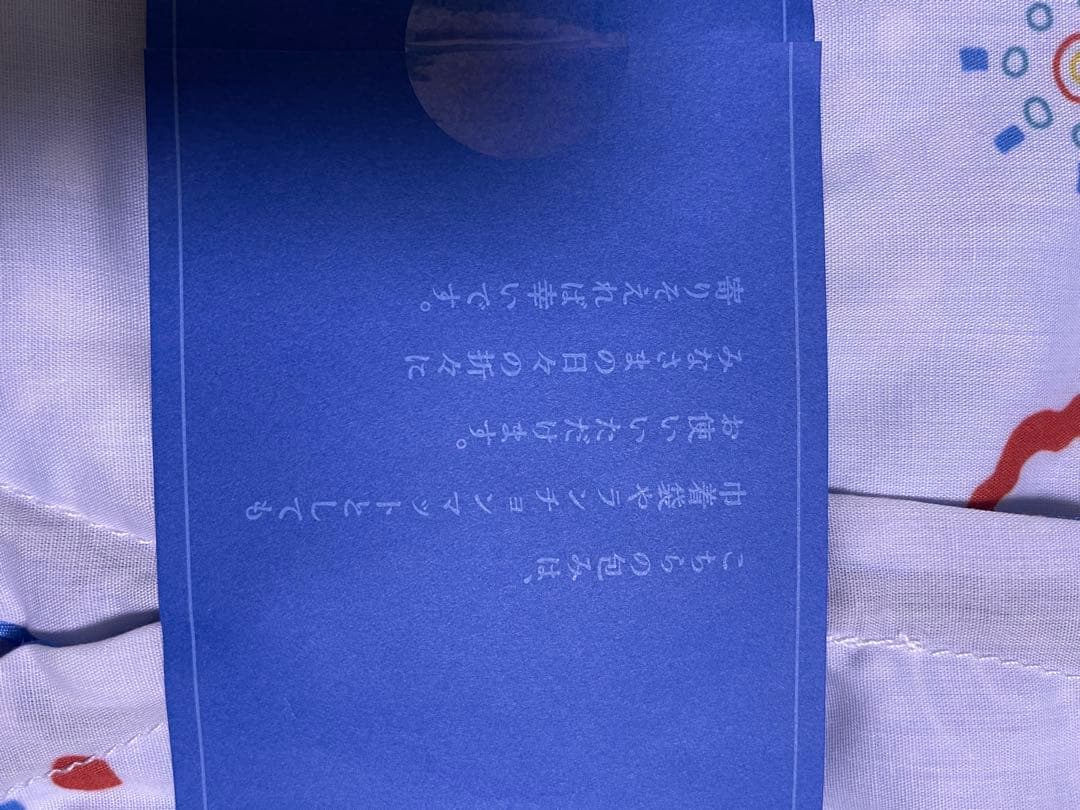 こちらの包みは、
巾着袋やランチョンマットとしても
お使いいただけます。
みなさまの日々の折々に
寄りそえれば幸いです。